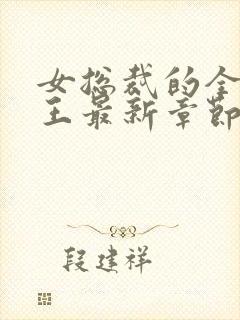 女总裁的全
王最新章节
段建祥